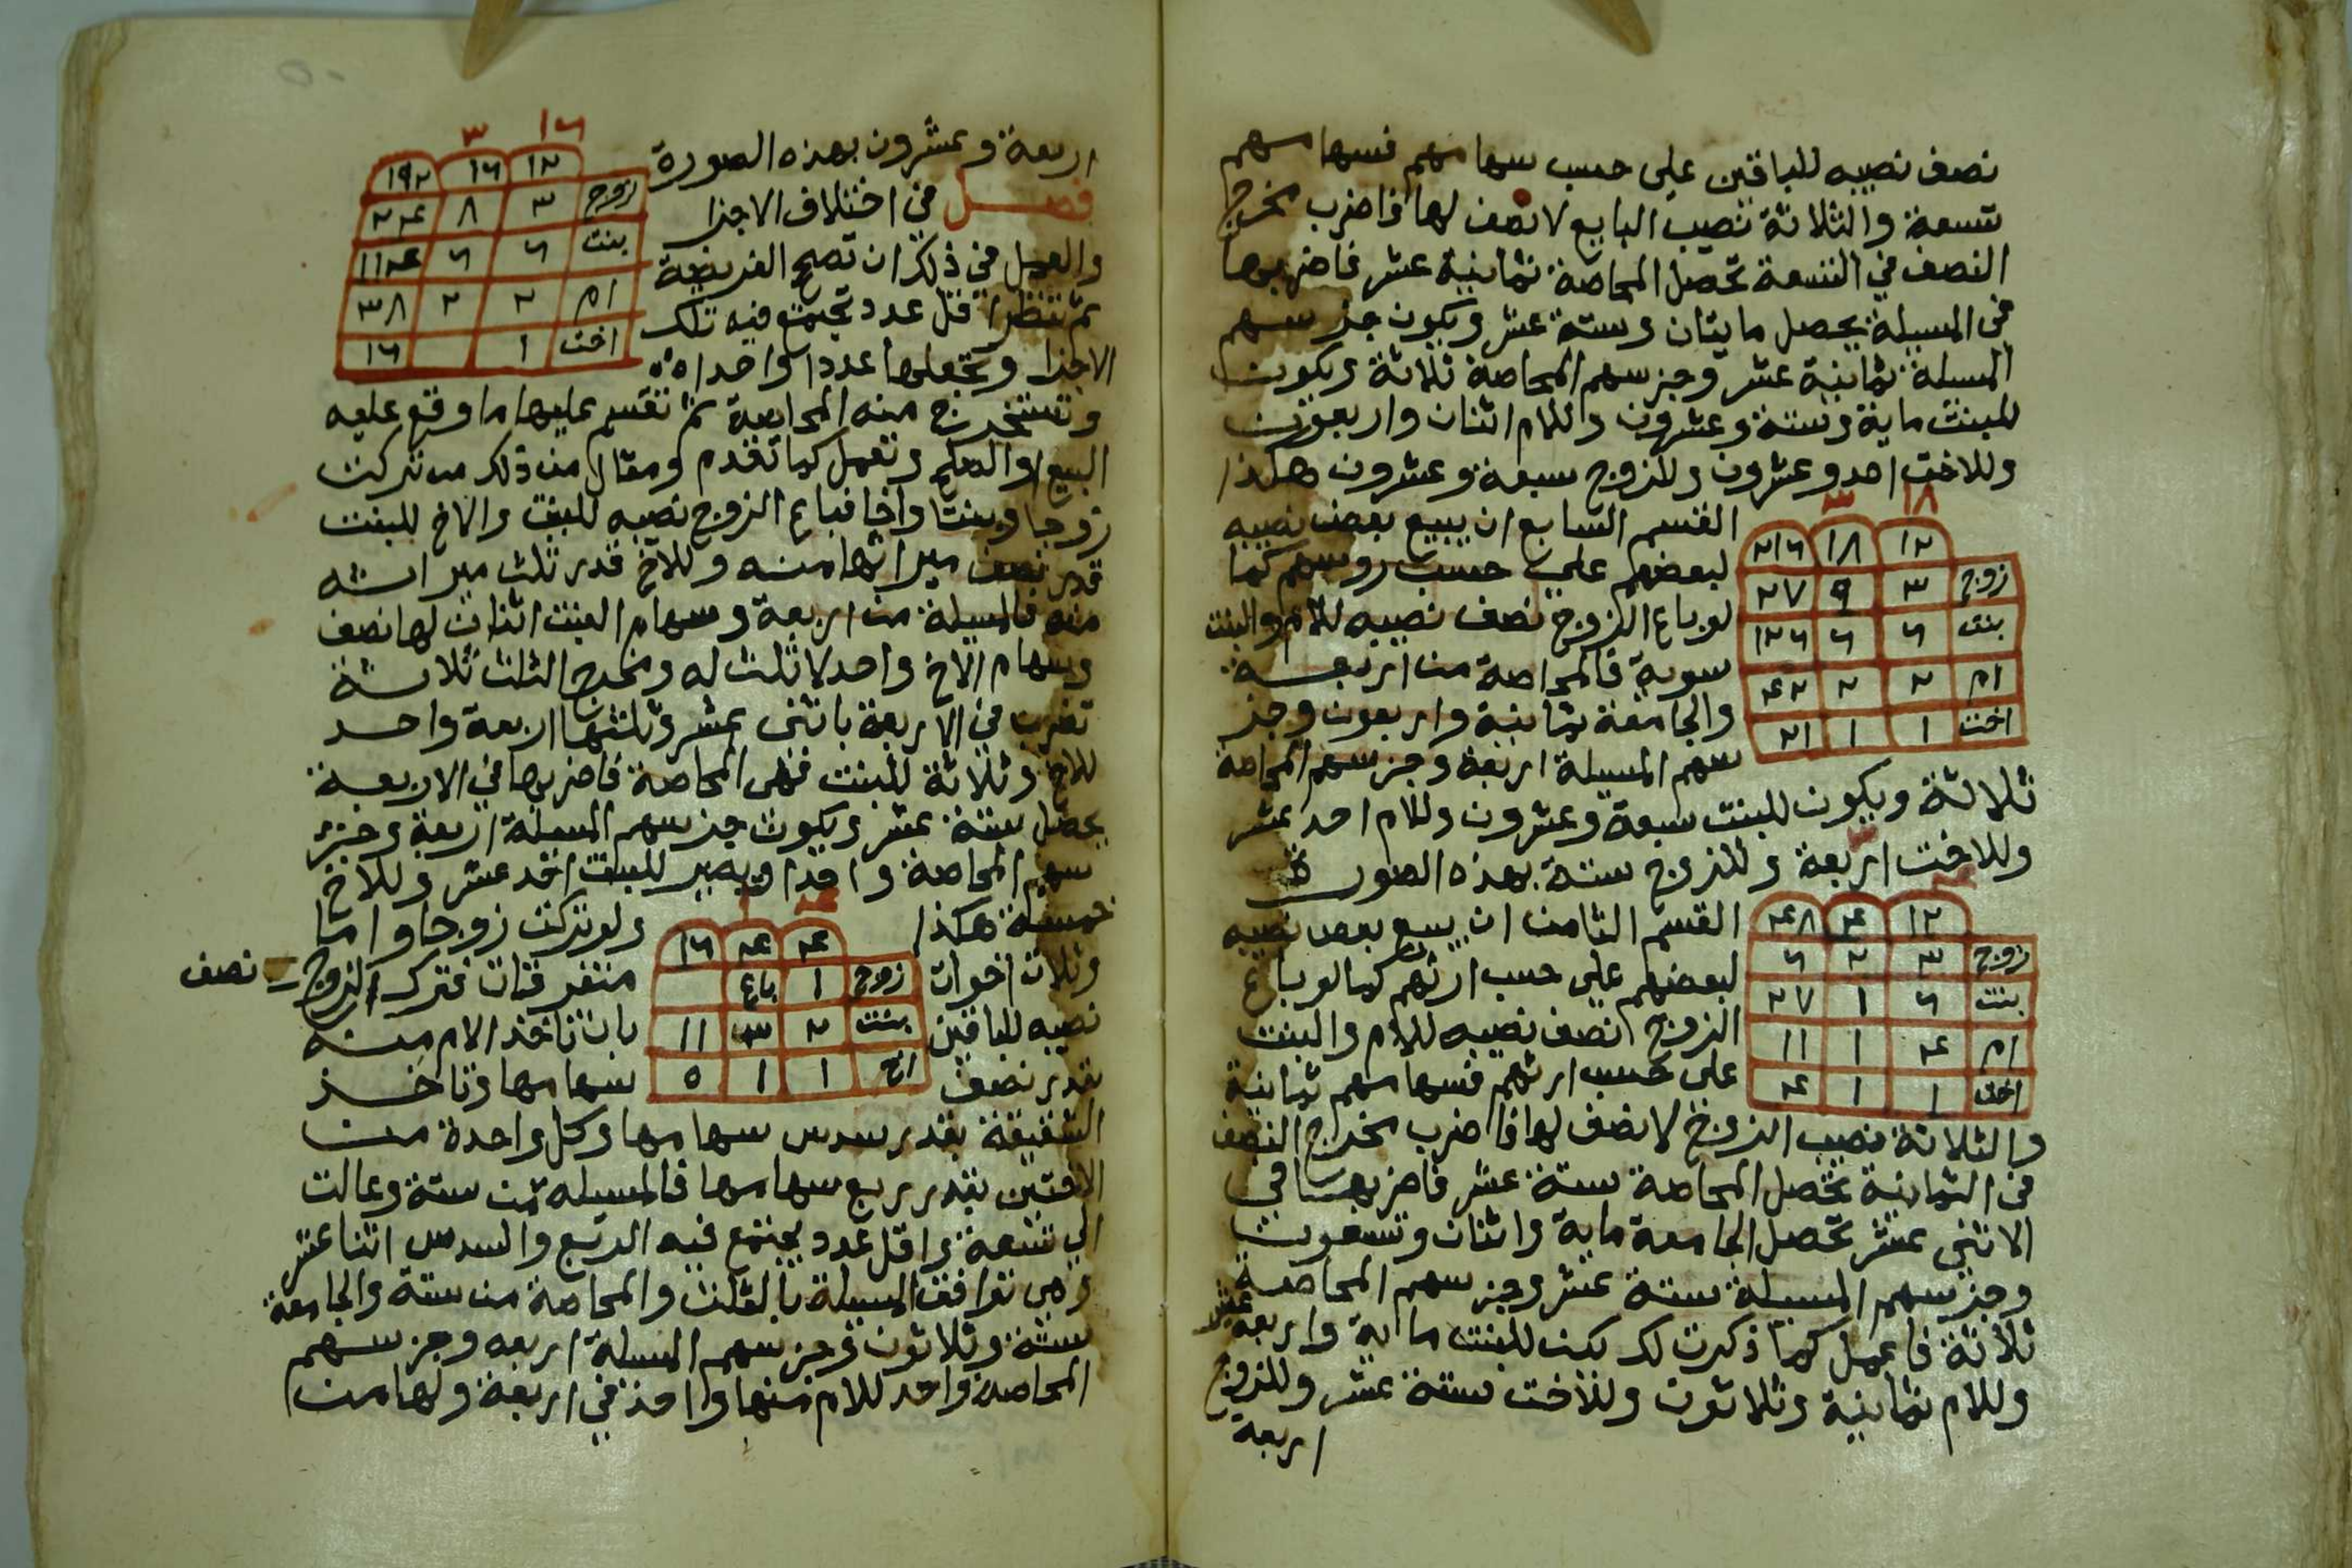 نصف نصيبه للباقين على حسب سهامهم فسهامهم
تسعة والثلاثة نصيب البايع لا نصف لها فاضرب مخرج
النصف في التسعة تحصل المحاصة ثمانية عشر فاضربها
في المسيلة يحصل مايتان وستة عشر ويكون جز سهم
المسيلة ثمانية عشر وجز سهم المحاصة ثلاثة ويكون
للبنت ماية وستة وعشرون وللام اثنان واربعون
وللاخت احد وعشرون وللزوج سبعة وعشرون هكذا
١٨ ٣
١٢ ١٨ ٢١٦
زوج ٣ ٩ ٢٧
بنت ٦ ٦ ١٢٦
ام ٢ ٢ ٤٢
اخت ١ ١ ٢١
القسم السابع ان يبيع بعض نصيبه
لبعضهم على حسب روسهم كما
لو باع الزوج نصف نصيبه للام والبنت
سوية فالمحاصة من اربعة
والجامعة ثمانية واربعون وجز
سهم المسيلة اربعة وجز سهم المحاصة
ثلاثة ويكون للبنت سبعة وعشرون وللام احد عشر
وللاخت اربعة وللزوج ستة بهذه الصورة
١٢ ٤ ٤٨
زوج ٣ ٢ ٦
بنت ٦ ١ ٢٧
ام ٤ ١ ١١
اخت ١ ١ ٤
القسم الثامن ان يبيع بعض نصيبه
لبعضهم على حسب ارثهم كما لو باع
الزوج نصف نصيبه للام والبنت
على حسب ارثهم فسهامهم ثمانية
والثلاثة نصيب الزوج لا نصف لها فاضرب مخرج النصف
في الثمانية تحصل المحاصة ستة عشر فاضربها في
الاثني عشر تحصل الجامعة ماية واثنان وتسعون
وجز سهم المسيلة ستة عشر وجز سهم المحاصة
ثلاثة فاعمل كما ذكرت لك يكن للبنت ماية واربعة عشر
وللام ثمانية وثلاثون وللاخت ستة عشر وللزوج
اربعة
اربعة وعشرون بهذه الصورة
١٦ ٣
١٢ ١٦ ١٩٢
زوج ٣ ٨ ٢٤
بنت ٦ ٦ ١١٤
ام ٢ ٢ ٣٨
اخت ١ ١٦
فصل في اختلاف الاجزا
والعمل في ذلك ان تصح الفريضة
ثم تنظر اقل عدد تجتمع فيه تلك
الاجزا وتجعلها عددا واحدا
وتستخرج منه المحاصة ثم تقسم عليها ما وقع عليه
البيع او الصلح وتعمل كما تقدم ومثال من ذلك من تركت
زوجا وبنتا واخا فباع الزوج نصيبه للبنت والاخ للبنت
قدر نصف ميراثها منه وللاخ قدر ثلث ميراثه
منه فالمسيلة من اربعة وسهام البنت اثنان لها نصف
وسهام الاخ واحد لا ثلث له ومخرج الثلث ثلاثة
تضرب في الاربعة باثني عشر وثلثها اربعة واحد
للاخ وثلاثة للبنت فهي المحاصة فاضربها في الاربعة
يحصل ستة عشر ويكون جز سهم المسيلة اربعة وجز
سهم المحاصة واحدا ويصير للبنت احد عشر وللاخ
خمسة هكذا
٤ ٤ ١٦
زوج ١ باع
بنت ٢ ٣ ١١
اخ ١ ١ ٥
ولو تركت زوجا واما
وثلاث اخوات متفرقات فترك الزوج نصف
نصيبه للباقين بان تاخذ الام منه
بقدر نصف سهامها وتاخذ
الشقيقة بقدر سدس سهامها وكل واحدة من
الاختين بقدر ربع سهامها فالمسيله من ستة وعالت
الى تسعة واقل عدد يجتمع فيه الربع والسدس اثنا عشر
وهي توافق المسيلة بالثلث والمحاصة من ستة والجامعة
ستة وثلاثون وجز سهم المسيلة اربعه وجز سهم
المحاصة واحد للام منها واحد في اربعة ولها من